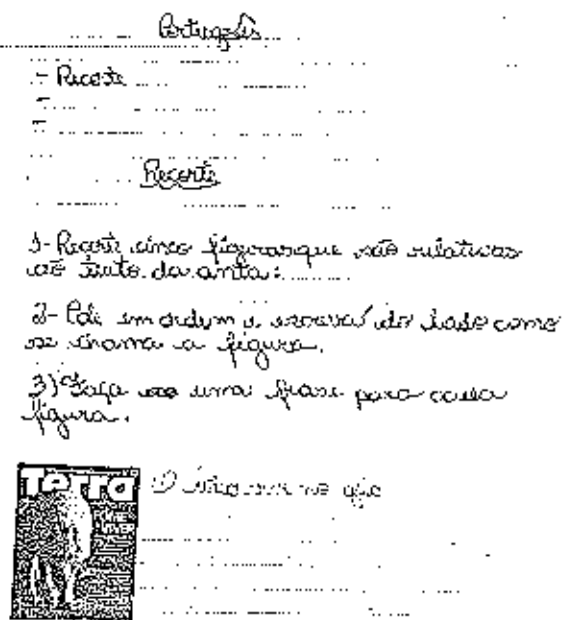 Português
- Recorte
Recorte
1- Recorte cinco figuras que são relativas
ao texto da anta:
2- Põe em ordem e escreva do lado como
se chama a figura.
3) Faça uma frase para cada
figura.
Terra
O